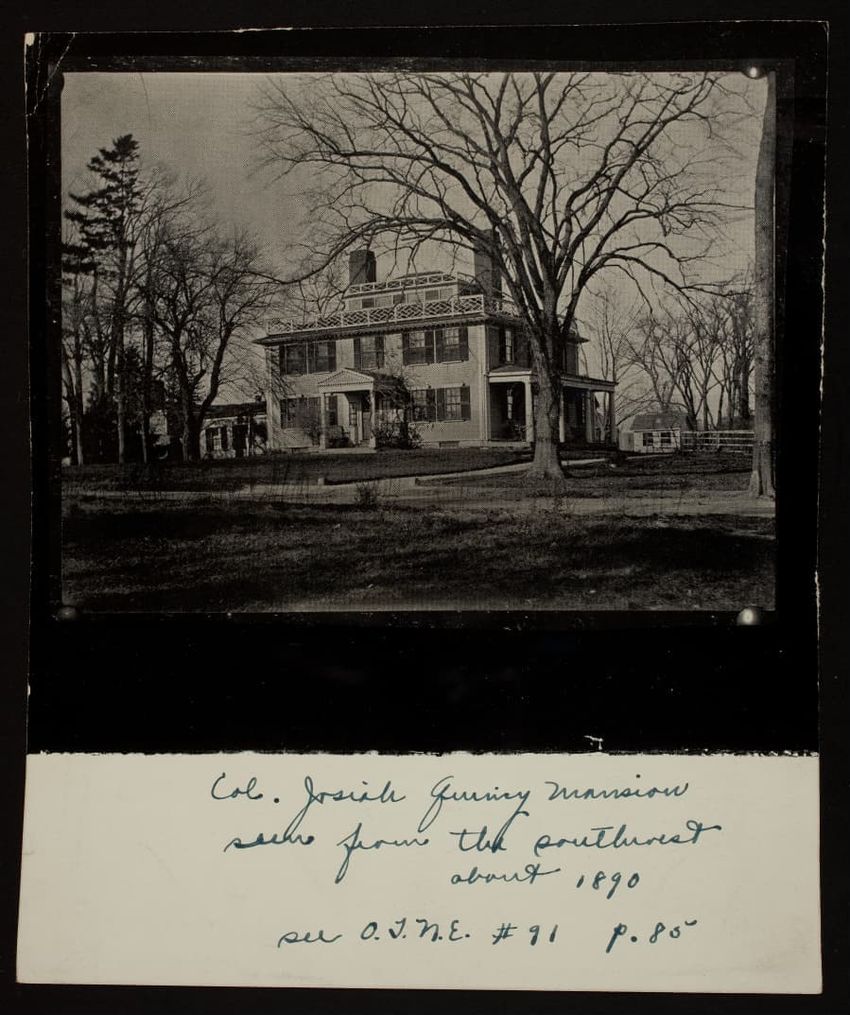 Col. Josiah Quincy Mansion
seen from the southwest
about 1890
see O.T.N.E. #91 p.85